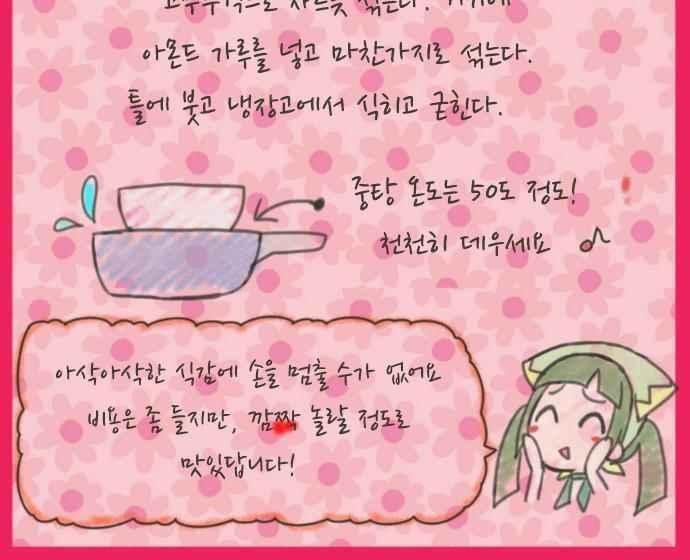 아몬드 가루를 넣고 마찬가지로 섞는다.
틀에 붓고 냉장고에서 식히고 굳힌다.
중탕 온도는 50도 정도!
천천히 데우세요
아삭아삭한 식감에 손을 멈출 수가 없어요
비용은 좀 들지만, 깜짝 놀랄 정도로
맛있답니다!